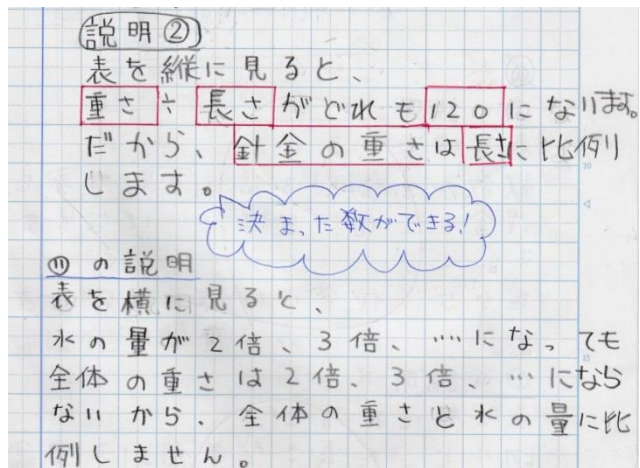 説明②
表を縦に見ると、
重さ÷長さがどれも120になります。
だから、針金の重さは長さに比例
します。
決まった数ができる!
㋒の説明
表を横に見ると、
水の量が2倍、3倍、…になっても
全体の重さは2倍、3倍、…になら
ないから、全体の重さと水の量に比
例しません。